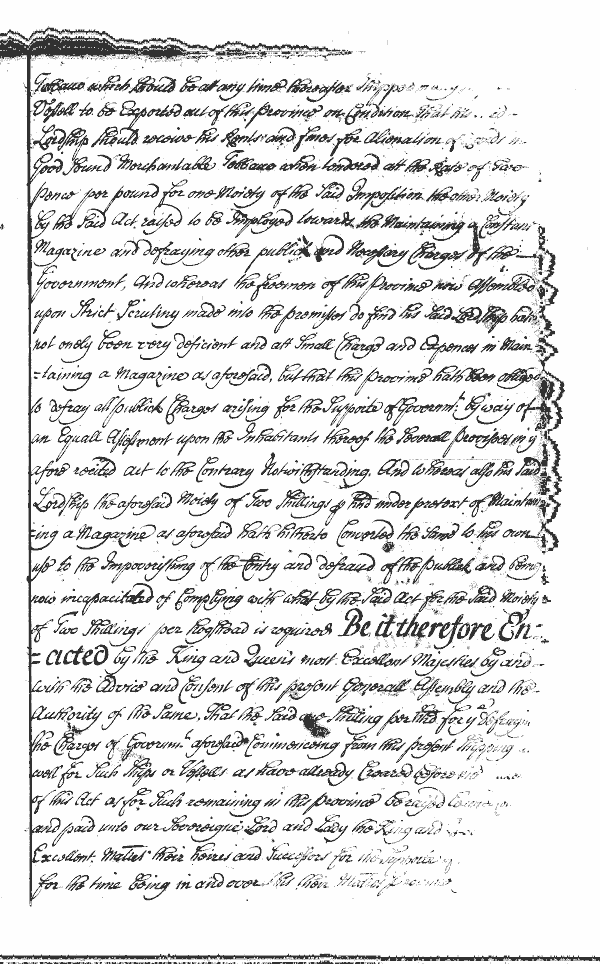 Tobbaco which should be at any time thereafter Shipped
Vessell to be Exported out of this Province on Condition that his
Lordship should receive his Rents and fines for Alienation of Lands in
Good Sound Merchantable Tobbaco when tendered att the Rate of Two
pence per pound for one Moiety of the Said Imposition the other Moiety
by the Said Act raised to be Imployed towards the Maintaining a Constant
Magazine and defraying other publick and Necessary Charges of the
Government, And whereas the freemen of this Province now Assembled
upon Strict Scrutiny made into the premises do find his Said Lordship hath
not onely been very deficient and att Small Charge and Expences in Main
=taining a Magazine as aforesaid, but that this Province hath been obliged
to defray all publick Charges arising for the Supporte of Governmt. by way of
an Equall Assessment upon the Inhabitants thereof the Severall Provisoes in ye
afore recited act to the Contrary Notwithstanding. And whereas also his Said
Lordship the aforesaid Moiety of Two Shillings p hhd under pretext of Maintain
=ing a Magazine as aforesaid hath hitherto Converted the Same to his own
use to the Impoverishing of the Cntry and defraud of the publick and being
now incapacitated of Complying with what by the Said Act for the Said Moiety
of Two Shillings per hogshead is required Be it therefore En-
=acted by the King and Queen's most Excellent Majesties by and
with the Advice and Consent of this present Generall Assembly and the
Authority of the Same, That the Said one Shilling per hhd for ye defraying
the Charges of Governmt. aforesaid Commencing from this present Shipping
well for Such Ships or Vessells as have already Cleared before the
of this Act as for Such remaining in this Province be raised
and paid unto our Sovereigne Lord and Lady the King and
Excellent Maties their heires and Successors for the Supporte
for the time being in and over this their Maties Province